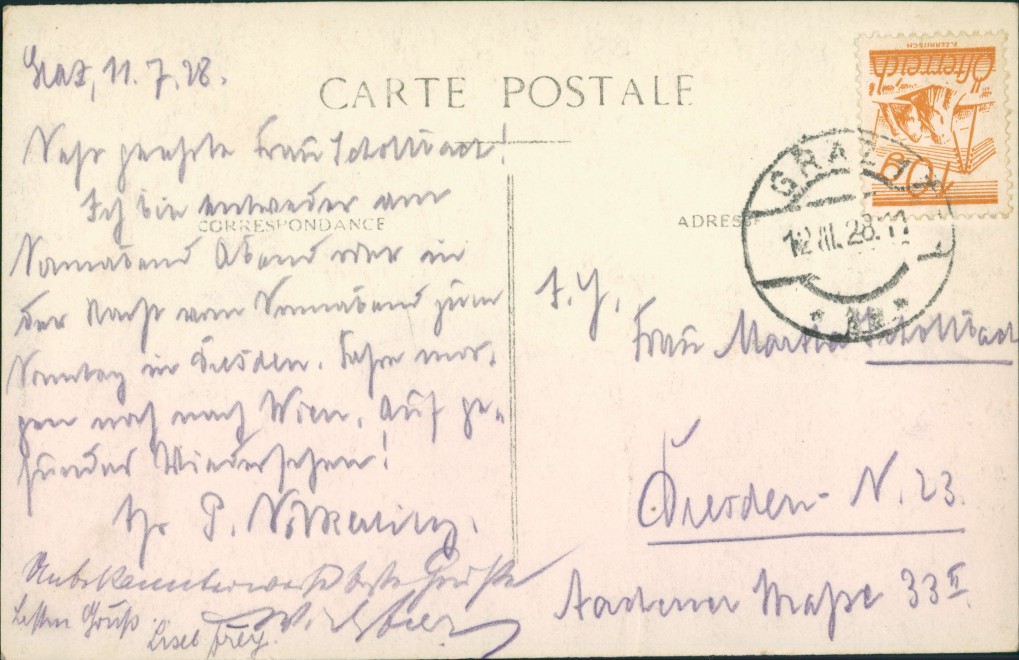 Graz, 11.7.28.
CARTE POSTALE
Sehr geehrte Frau Schollbach!
Ich bin entweder am
CORRESPONDANCE
Sonnabend Abend oder in
der Nacht vom Sonnabend zum
Sonntag in Dresden. Fahre mor-
gen noch nach Wien. Auf ge-
sundes Wiedersehen!
Ihr P.
Unbekannterweise beste Grüße
Besten Gruß
Lisel Frey.
F. ZERRITSCH
Österreich
40
GRAZ 1
12.VII.28.11
ADRESSE
Frau Martha Schollbach
Dresden-N. 23.
Aachener Straße 33 II